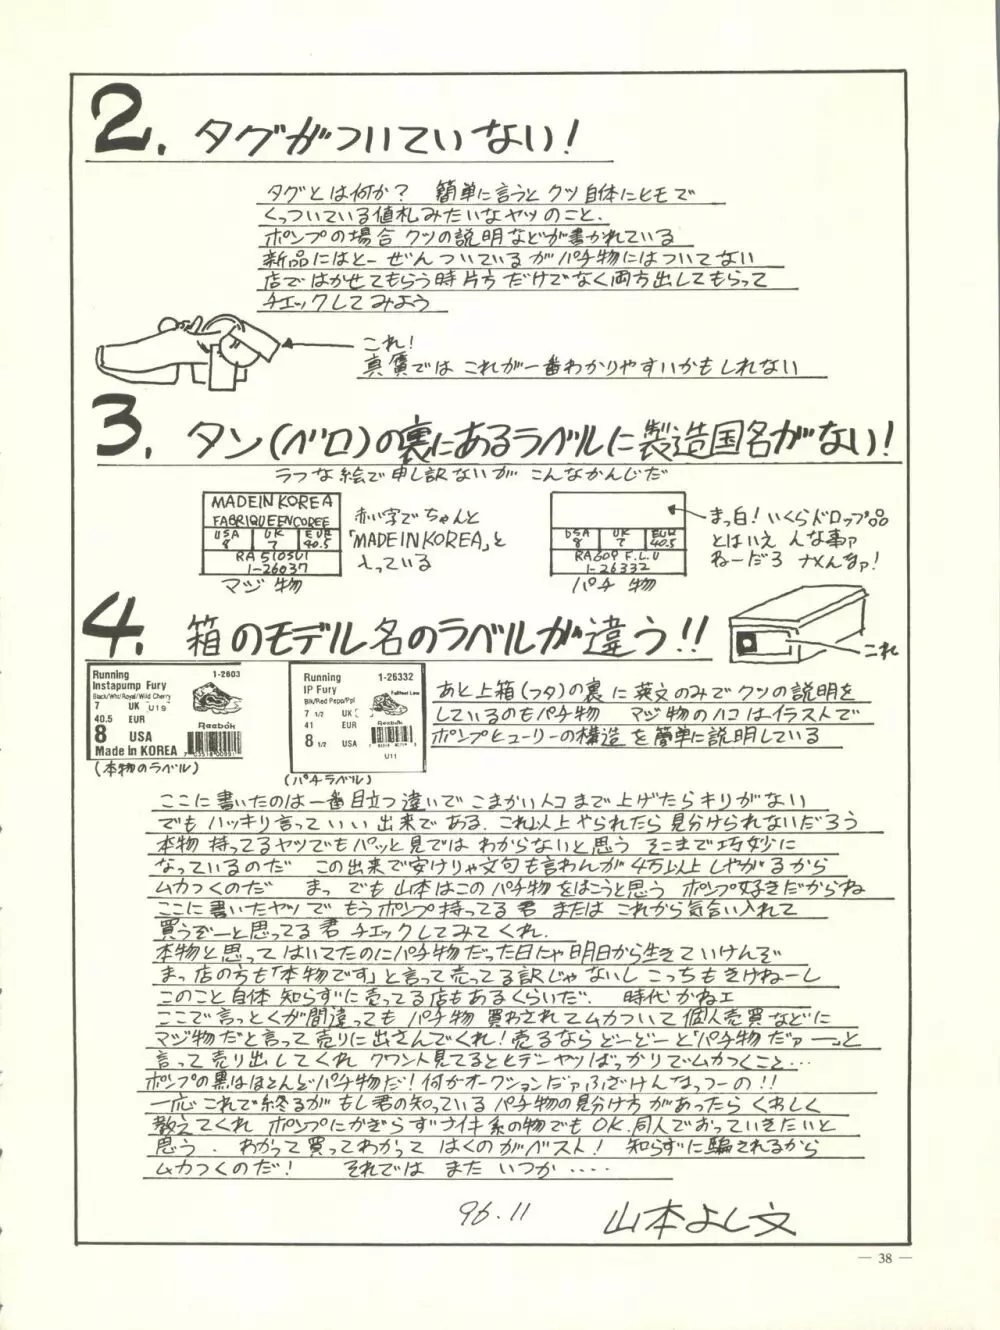 2. タグがついていない!
タグとは何か? 簡単に言うと クツ自体にヒモで
くっついている値札みたいなヤツのこと.
ポンプの場合 クツの説明などが書かれている
新品にはとーぜんついているがパチ物にはついてない
店ではかせてもらう時片方だけでなく両方出してもらって
チェックしてみよう
これ!
真贋では これが一番わかりやすいかもしれない
3. タン(ベロ)の裏にあるラベルに製造国名がない!
ラフな絵で申し訳ないが こんなかんじだ
MADE IN KOREA
FABRIQUE EN COREE
USA 8 UK 7 EUR 40.5
RA 510SU1
1-26037
マジ物
赤い字でちゃんと
「MADE IN KOREA」と
入っている
USA 8 UK 7 EUR 40.5
RA 609 F.L.U
1-26332
パチ物
まっ白! いくらドロップ品
とはいえ んな事ァ
ねーだろ ナメんなァ!
4. 箱のモデル名のラベルが違う!!
これ
Running 1-2603
Instapump Fury
Black/Wht/Royal/Wild Cherry
7 UK U19
40.5 EUR
8 USA
Reebok
Made in KOREA
(本物のラベル)
Running 1-26332
IP Fury
Blk/Red Pepp/Ppl
7 1/2 UK
41 EUR
8 1/2 USA
U11
(パチラベル)
あと上箱(フタ)の裏に英文のみでクツの説明を
しているのもパチ物 マジ物のハコはイラストで
ポンプヒューリーの構造を簡単に説明している
ここに書いたのは一番目立つ違いで こまかいトコまで上げたらキリがない
でも ハッキリ言っていい出来である. これ以上やられたら見分けられないだろう
本物持ってるヤツでもパッと見ではわからないと思う そこまで巧妙に
なっているのだ この出来で安けりゃ文句も言わんが4万以上しやがるから
ムカつくのだ まっ でも山本はこのパチ物をはこうと思う ポンプ好きだからね
ここに書いたヤツで もうポンプ持ってる君 または これから気合い入れて
買うぞーと思ってる君 チェックしてみてくれ.
本物と思って はいてたのにパチ物だった日にゃ明日から生きていけんぞ
まっ店の方も「本物です」と言って売ってる訳じゃないし こっちもきけねーし
このこと自体 知らずに売ってる店もあるくらいだ. 時代かねェ
ここで言っとくが間違っても パチ物 買わされてムカついて個人売買などに
マジ物だと言って売りに出さんでくれ!売るならどーどーと「パチ物だァー」と
言って売り出してくれ クワント見てるととデーヤツばっかりでムカつくこと…
ポンプの黒はほとんどパチ物だ!何がオークションだァふざけんなっつーの!!
一応これで終るが もし君の知っている パチ物の見分け方があったら くわしく
教えてくれ ポンプにかぎらず ナイキ系の物でもOK.同人でおっていきたいと
思う. わかって買ってわかって はくのがベスト! 知らずに騙されるから
ムカつくのだ! それでは また いつか ‥‥
96.11 山本よし文
— 38 —